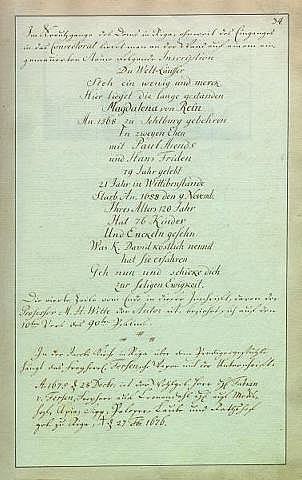 34
Im Creutzgange des Doms in Riga, ohnweit des Einganges
in das Conrectorat lieset man an der Wand auf einem ein
gemauerten Steine folgende Inscription
Du Welt-Läuffer
Steh ein wenig und merck
Hier lieget die lange gestanden
Magdalena von Rein
An. 1568 zu Sehlburg gebohren
In zweyen Ehen
mit Paul Hiends
und Hans Friden
79 Jahr gelebt
21 Jahr in Wittibenstande
Starb An. 1688 den 9 Novemb.
Ihres Alters 120 Jahr
Hat 76 Kinder
Und Enckeln gesehn
Was K. David köstlich nennit
hat sie erfahren
Geh nun und schicke dich
zur seligen Ewigkeit.
Die vierte Zeile vom Ende in dieser Innschrift, wovon der
Professor M. H. Witte der Autor ist, beziehet sich auf den
10ten Vers des 90ten Psalms.
In der Jacobs Kirch in Riga über dem
hängt das Fersensche Wapen mit der Unterschrift:
A. 1675 d 28 Decbr. ist der Herr Fabian
v. Fersen, Freyherr
geb. zu Riga, d 27 1676.